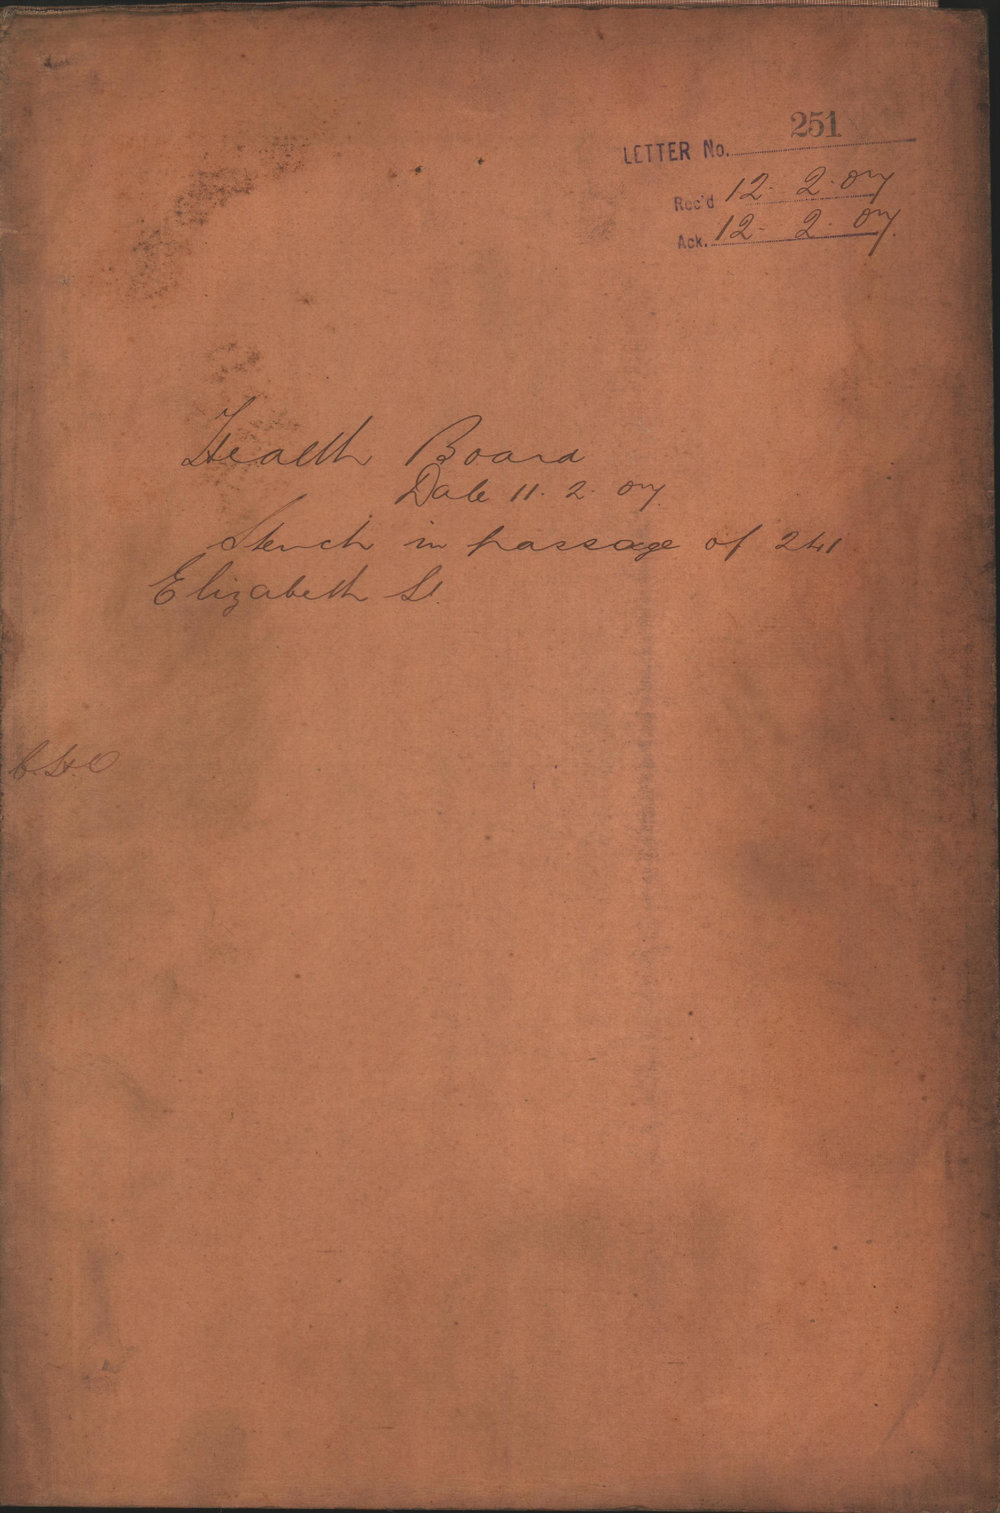 LETTER No. 251
Rec'd 12. 2. 07
Ack. 12. 2. 07.
Health Board
Date 11. 2. 07.
Stench in passage of 241
Elizabeth St.
C.H.O